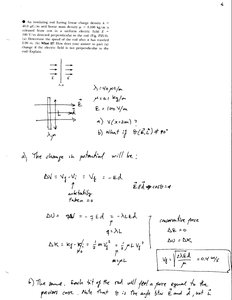 An insulating rod having linear charge density λ =
40.0 μC/m and linear mass density μ = 0.100 kg/m is
released from rest in a uniform electric field E =
100 V/m directed perpendicular to the rod (Fig.
(a) Determine the speed of the rod after it has traveled
2.00 m. (b) What If? How does your answer to part (a)
change if the electric field is not perpendicular to the
rod? Explain.
λ = 40 μC/m
μ = 0.1 kg/m
E = 100 V/m
a) V(x=2m) ?
b) What if ≠ 90°
E
L
λ, μ
a) The change in potential will be:
ΔV = Vf - Vi = Vf = -Ed
arbitrarily
taken = 0
ΔU = qΔV = -qEd = -λLEd
q = λL
ΔK = Kf - Ki = 1/2 m vf² = 1/2 μL vf²
m = μL
conservative force
ΔE = 0
ΔU = ΔK
vf = √(2λEd/μ) = 0.4 m/s
b) The same. Each bit of the rod will feel a force equal to the
previous case. Note that θ is the angle btw E and d, not L